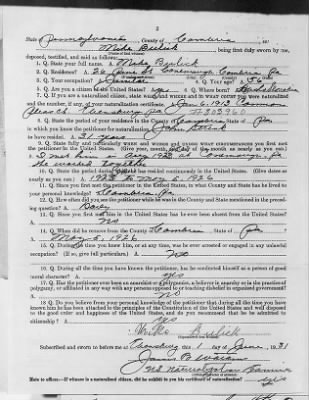 3
State of Pennsylvania County of Cambria ss:
Mike Burlick being first duly sworn by me,
(Name of witness)
deposed, testified, and said as follows:
1. Q. State your full name. A. Mike Burlick
2. Q. Residence? A. 26 St Conemaugh Cambria Pa
3. Q. Your occupation? A. Janitor 4. Q. Your age? A. 56
5. Q. Are you a citizen of the United States? yes 6. Q. Where born?
7. Q. If you are a naturalized citizen, state what and when and in what court you were naturalized
and the number, if any, of your naturalization certificate. Jan 6, 1913 Common
Pleas Ct. Ebensburg Pa
8. Q. State the period of your residence in the County Cambria State of Pa
in which you know the petitioner for naturalization John
to have resided. A. 31 years
9. Q. State fully and particularly when and where and under what circumstances you first met
the petitioner in the United States. (Give year, month, and day of the month as nearly as you can.)
A. I met him in Aug 1922 at Conemaugh, Pa
We worked together
10. Q. State the period during which he has resided continuously in the United States. (Give dates as
nearly as you can.) 1922 to May 5, 1926
11. Q. Since you first met the petitioner in the United States, in what County and State has he lived to
your personal knowledge? A. Cambria, Pa
12. Q. How often did you see the petitioner while he was in the County and State mentioned in the preced-
ing question? A. Daily
13. Q. Since you first met him in the United States has he ever been absent from the United States?
A. No
14. Q. When did he remove from the County Cambria, State of Pa
A. May 5, 1926
15. Q. During the time you have known him, or at any time, was he ever arrested or engaged in any unlawful
occupation? (If so, give full particulars.) A. No
16. Q. During all the time you have known the petitioner, has he conducted himself as a person of good
moral character? A. yes
17. Q. Has the petitioner ever been an anarchist or a polygamist, a believer in anarchy or in the practice of
polygamy, or affiliated in any way with any persons opposed to or teaching disbelief in organized government?
A. No
18. Q. Do you believe from your personal knowledge of the petitioner that during all the time you have
known him he has been attached to the principles of the Constitution of the United States and well disposed
to the good order and happiness of the United States, and do you recommend that he be admitted to
citizenship? A. yes
Mike Burlick
Subscribed and sworn to before me at Ebensburg this 1 day of June, 1931
US Naturalization Examiner
Note to officer.—If witness is a naturalized citizen, did he exhibit to you his certificate of naturalization? yes